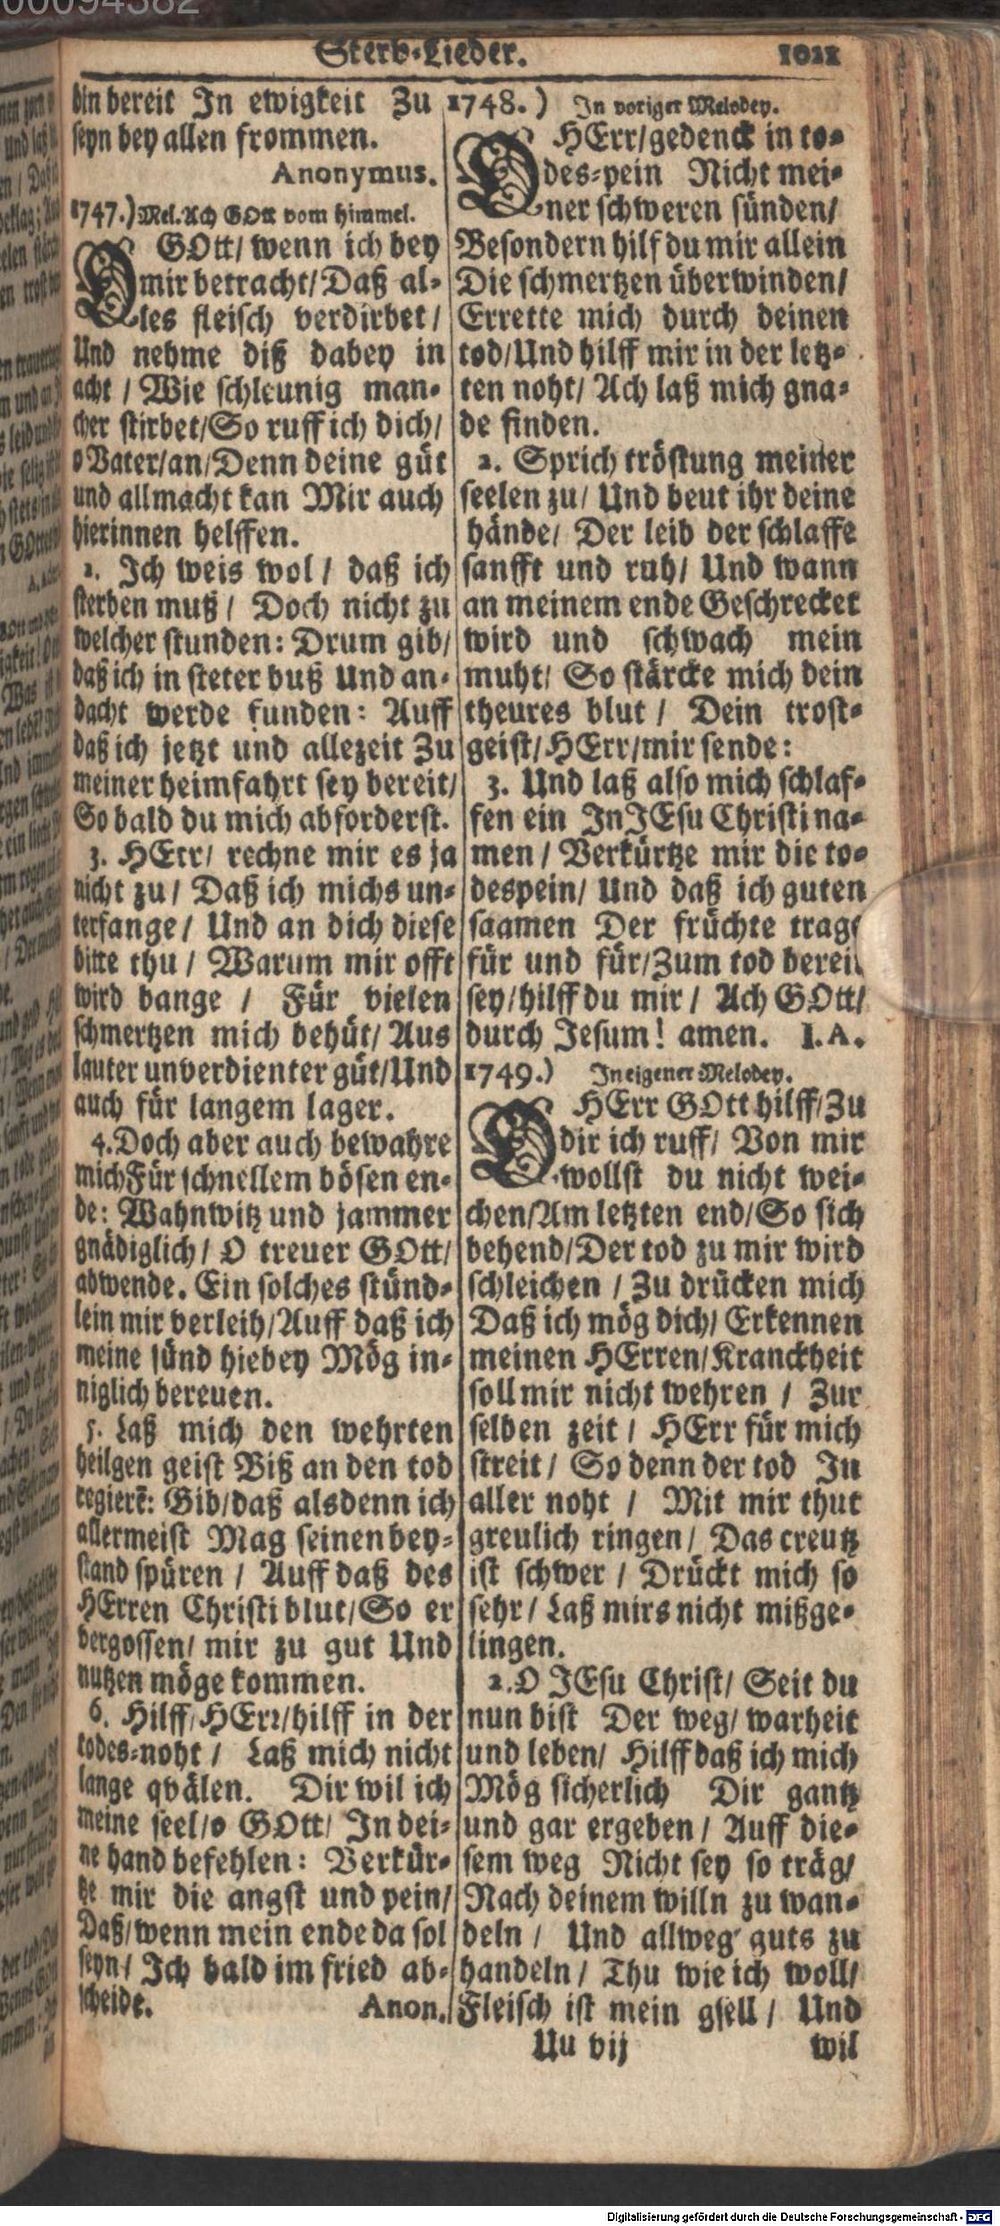 Sterb-Lieder. 1021
bin bereit In ewigkeit Zu
seyn bey allen frommen.
Anonymus.
1747.) Mel. Ach GOtt vom himmel.
O GOtt/ wenn ich bey
mir betracht/ Daß al-
les fleisch verdirbet/
Und nehme diß dabey in
acht / Wie schleunig man-
cher stirbet/ So ruff ich dich/
o Vater/ an/ Denn deine güt
und allmacht kan Mir auch
hierinnen helffen.
2. Ich weis wol / daß ich
sterben muß / Doch nicht zu
welcher stunden: Drum gib/
daß ich in steter buß Und an-
dacht werde funden: Auff
daß ich jetzt und allezeit Zu
meiner heimfahrt sey bereit/
So bald du mich abforderst.
3. HErr/ rechne mir es ja
nicht zu / Daß ich michs un-
terfange / Und an dich diese
bitte thu / Warum mir offt
wird bange / Für vielen
schmertzen mich behüt/ Aus
lauter unverdienter güt/ Und
auch für langem lager.
4. Doch aber auch bewahre
mich Für schnellem bösen en-
de: Wahnwitz und jammer
gnädiglich / O treuer GOtt/
abwende. Ein solches stünd-
lein mir verleih/ Auff daß ich
meine sünd hiebey Mög in-
niglich bereuen.
5. Laß mich den wehrten
heilgen geist Biß an den tod
regierē: Gib/ daß alsdenn ich
allermeist Mag seinen bey-
stand spüren / Auff daß des
HErren Christi blut/ So er
vergossen/ mir zu gut Und
nutzen möge kommen.
6. Hilff/ HErr/ hilff in der
todes-noht / Laß mich nicht
lange qvälen. Dir wil ich
meine seel/ o GOtt/ In dei-
ne hand befehlen: Verkür-
tze mir die angst und pein/
Daß/ wenn mein ende da sol
seyn/ Ich bald im fried ab-
scheide. Anon.
1748.) In voriger Melodey.
O HErr/ gedenck in to-
des-pein Nicht mei-
ner schweren sünden/
Besondern hilf du mir allein
Die schmertzen überwinden/
Errette mich durch deinen
tod/ Und hilff mir in der letz-
ten noht/ Ach laß mich gna-
de finden.
2. Sprich tröstung meiner
seelen zu/ Und beut ihr deine
hände/ Der leib der schlaffe
sanfft und ruh/ Und wann
an meinem ende Geschrecket
wird und schwach mein
muht/ So stärcke mich dein
theures blut / Dein trost-
geist/ HErr/ mir sende:
3. Und laß also mich schlaf-
fen ein In JEsu Christi na-
men / Verkürtze mir die to-
despein/ Und daß ich guten
saamen Der früchte trag/
für und für/ Zum tod bereit
sey/ hilff du mir / Ach GOtt/
durch Jesum! amen. I. A.
1749.) In eigener Melodey.
O HErr GOtt hilff/ Zu
dir ich ruff/ Von mir
wollst du nicht wei-
chen/ Am letzten end/ So sich
behend/ Der tod zu mir wird
schleichen / Zu drücken mich
Daß ich mög dich/ Erkennen
meinen HErren/ Kranckheit
soll mir nicht wehren / Zur
selben zeit / HErr für mich
streit / So denn der tod In
aller noht / Mit mir thut
greulich ringen / Das creutz
ist schwer / Drückt mich so
sehr / Laß mirs nicht mißge-
lingen.
2. O JEsu Christ/ Seit du
nun bist Der weg/ warheit
und leben/ Hilff daß ich mich
Mög sicherlich Dir gantz
und gar ergeben / Auff die-
sem weg Nicht sey so träg/
Nach deinem willn zu wan-
deln / Und allweg guts zu
handeln / Thu wie ich woll/
Fleisch ist mein gsell / Und
Uu vij wil
Digitalisierung gefördert durch die Deutsche Forschungsgemeinschaft - DFG